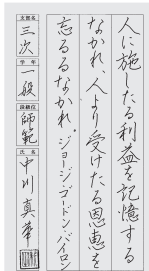 人に施したる利益を記憶する
なかれ、人より受けたる恩恵を
忘るるなかれ。ジョージ・ゴードン・バイロン
支部名
三次
学年
一般
段級位
師範
氏名
中川真華